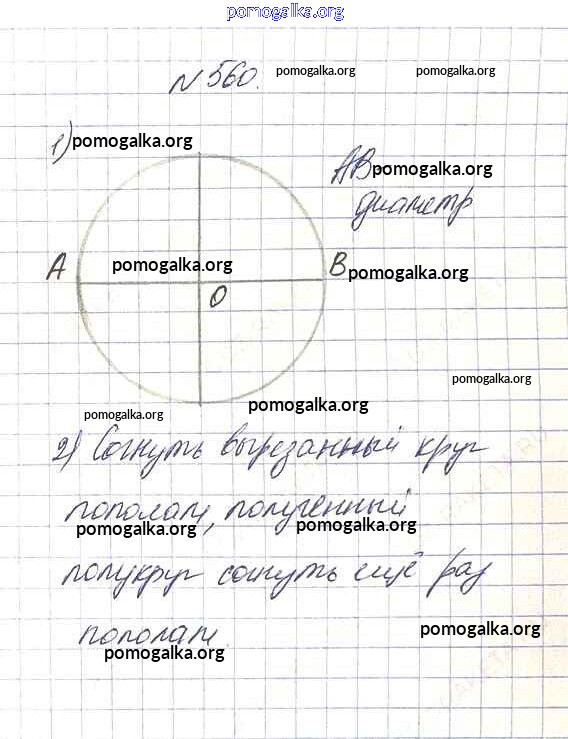 pomogalka.org
N 560.
pomogalka.org pomogalka.org
1) pomogalka.org
AB pomogalka.org
диаметр
A pomogalka.org B pomogalka.org
O
pomogalka.org
pomogalka.org pomogalka.org
2) Согнуть вырезанный круг
пополам, полученный
pomogalka.org pomogalka.org
полукруг согнуть ещё раз
пополам.
pomogalka.org
pomogalka.org